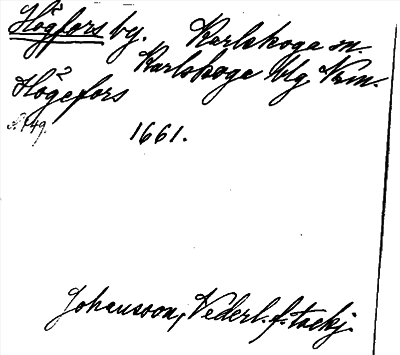 Högfors by. Karlskoga sn.
Karlskoga blg Vrm.
Högefors
s. 149.
1661.
Johansson, Nederl. f. tackj.